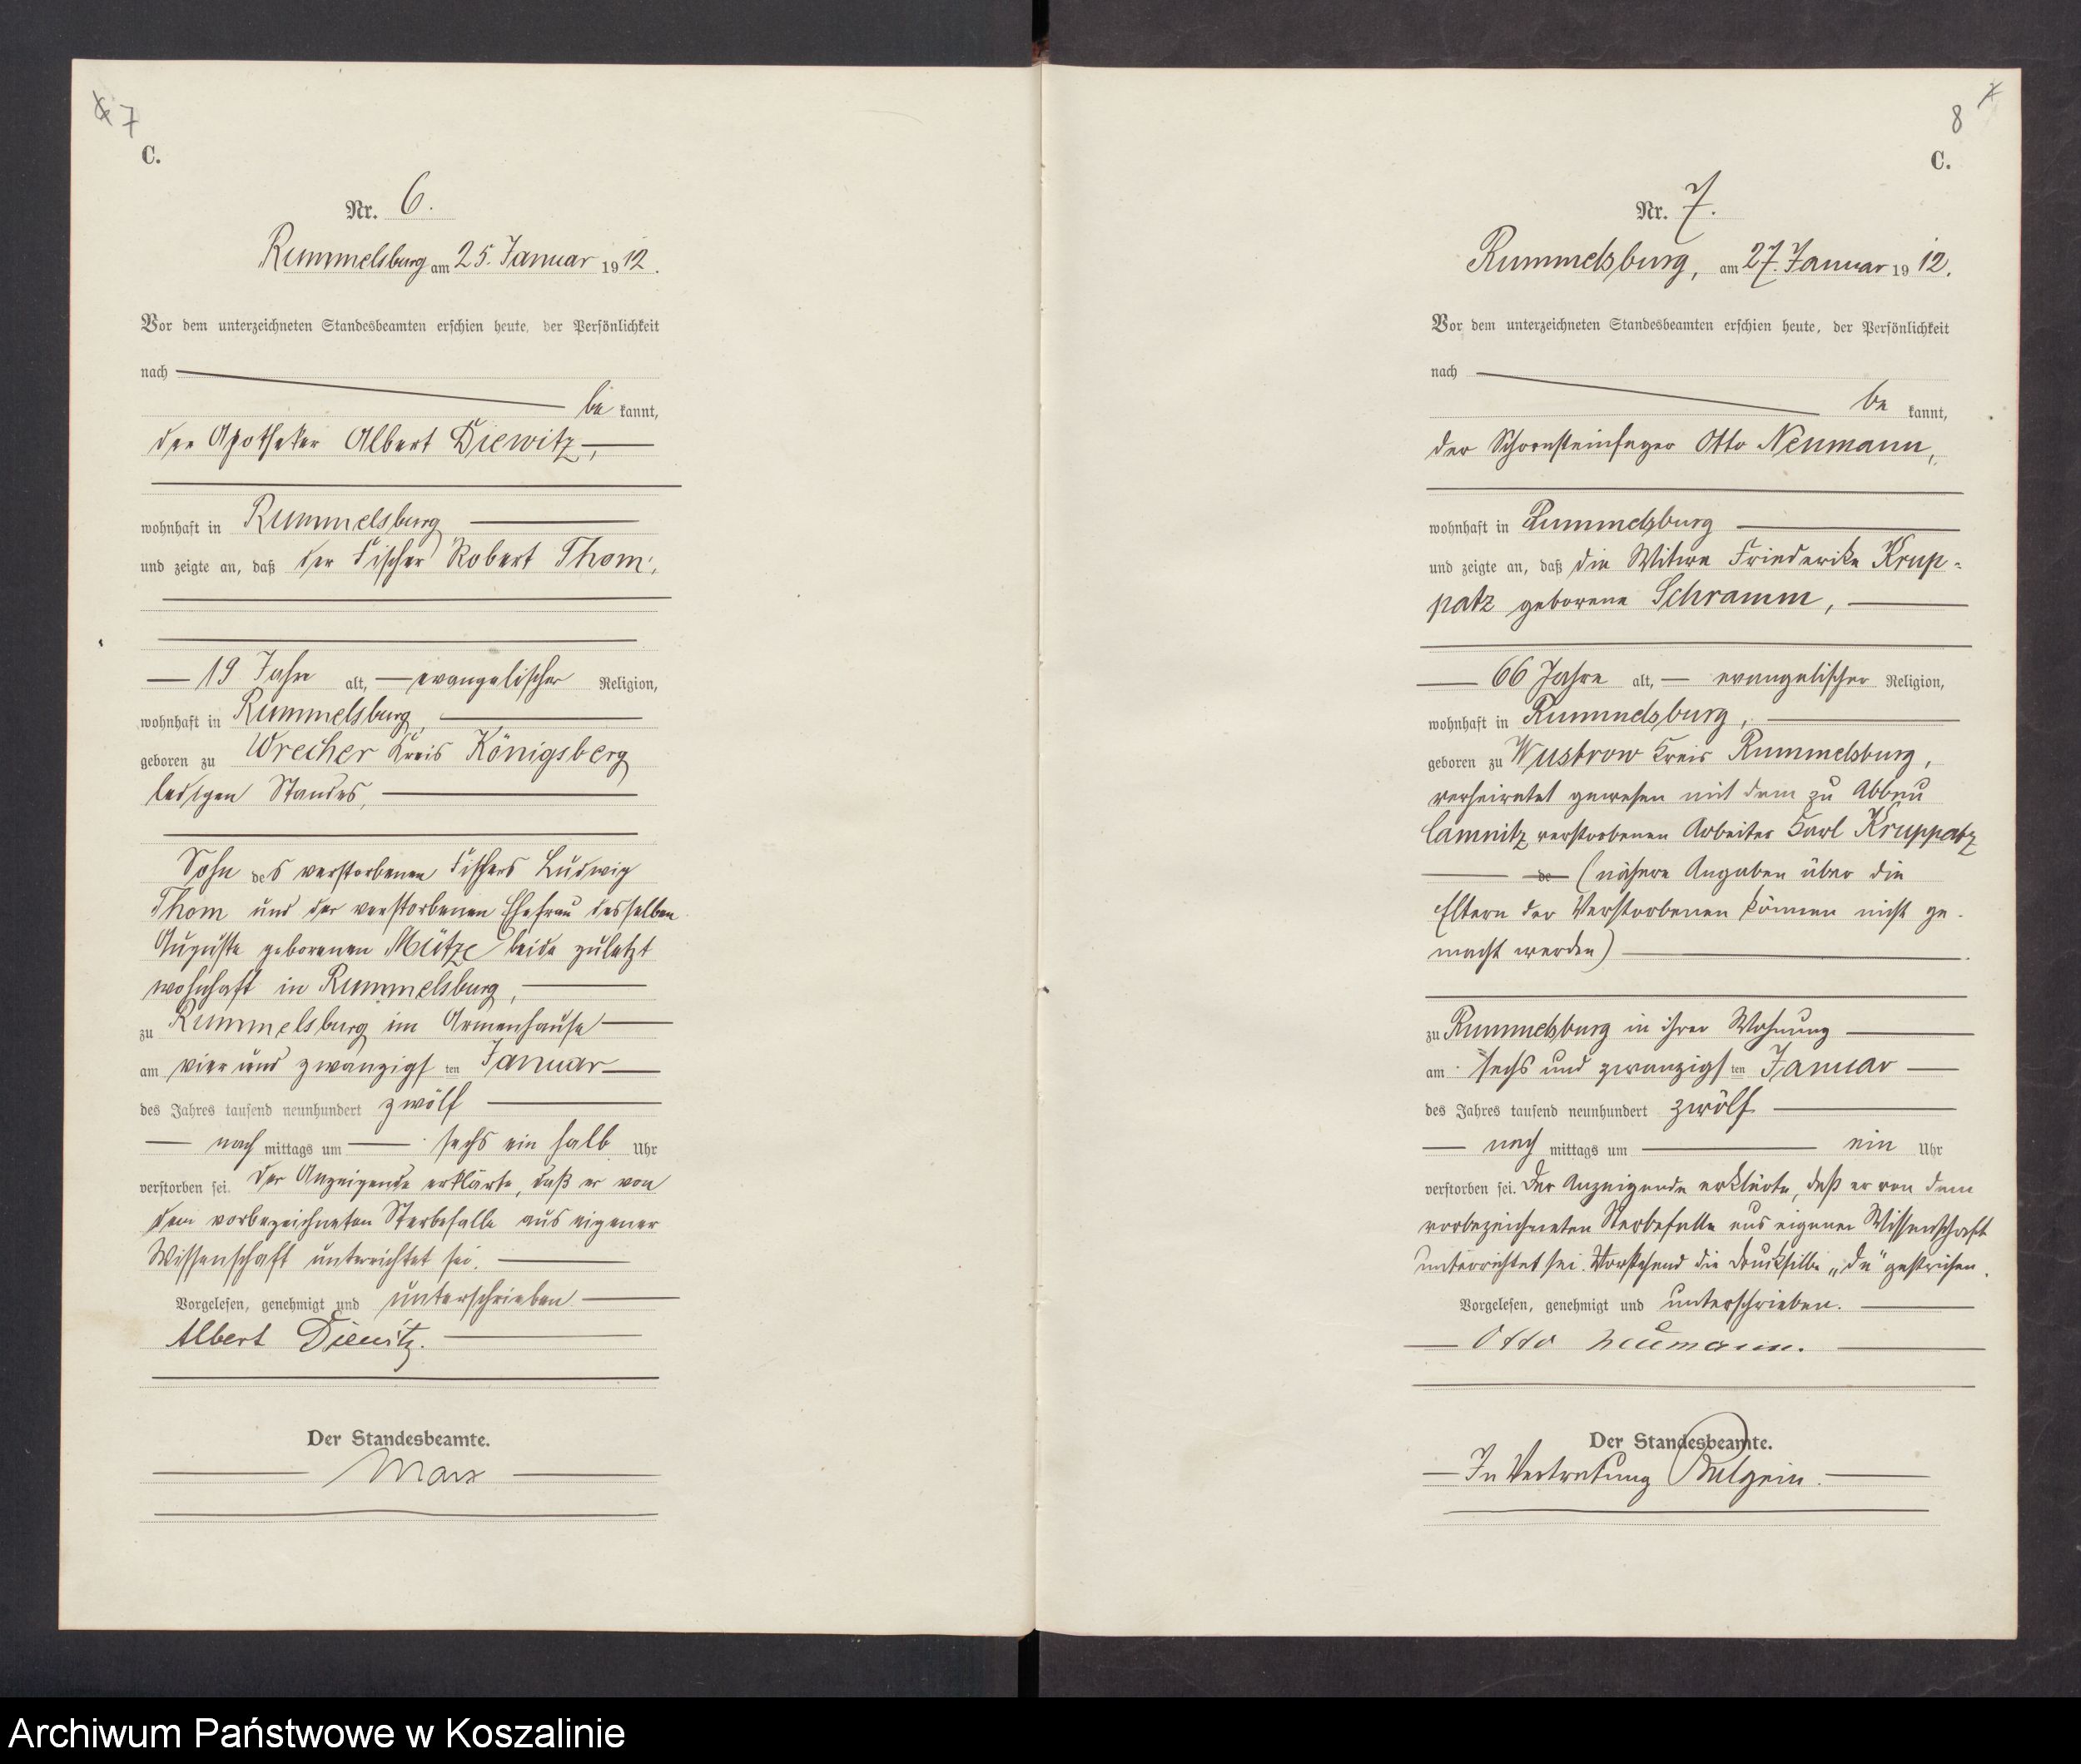 7
C.
Nr. 6.
Rummelsburg am 25. Januar 1912.
Vor dem unterzeichneten Standesbeamten erschien heute, der Persönlichkeit
nach
be kannt,
der Apotheker Albert Diewitz,
wohnhaft in Rummelsburg
und zeigte an, daß der Fischer Robert Thom,
19 Jahre alt, evangelischer Religion,
wohnhaft in Rummelsburg,
geboren zu Wreicher Kreis Königsberg
ledigen Standes,
Sohn des verstorbenen Fischers Ludwig
Thom und der verstorbenen Ehefrau desselben
Auguste geborenen Mütze beide zuletzt
wohnhaft in Rummelsburg,
zu Rummelsburg im Armenhause
am vier und zwanzigsten Januar
des Jahres tausend neunhundert zwölf
nach mittags um sechs ein halb Uhr
verstorben sei. Der Anzeigende erklärte, daß er von
dem vorbezeichneten Sterbefalle aus eigener
Wissenschaft unterrichtet sei.
Vorgelesen, genehmigt und unterschrieben
Albert Diewitz.
Der Standesbeamte.
Marx
8
C.
Nr. 7.
Rummelsburg, am 27. Januar 1912.
Vor dem unterzeichneten Standesbeamten erschien heute, der Persönlichkeit
nach
be kannt,
der Schornsteinfeger Otto Neumann,
wohnhaft in Rummelsburg
und zeigte an, daß die Witwe Friederike Krup-
patz geborene Schramm,
66 Jahre alt, evangelischer Religion,
wohnhaft in Rummelsburg,
geboren zu Wustrow Kreis Rummelsburg,
verheiratet gewesen mit dem zu Abbau
Camnitz verstorbenen Arbeiter Karl Kruppatz
de (nähere Angaben über die
Eltern der Verstorbenen können nicht ge-
macht werden)
zu Rummelsburg in ihrer Wohnung
am sechs und zwanzigsten Januar
des Jahres tausend neunhundert zwölf
nach mittags um ein Uhr
verstorben sei. Der Anzeigende erklärte, daß er von dem
vorbezeichneten Sterbefalle aus eigener Wissenschaft
unterrichtet sei. Vorstehend die Drucksilbe „de" gestrichen.
Vorgelesen, genehmigt und unterschrieben.
Otto Neumann.
Der Standesbeamte.
In Vertretung
Archiwum Państwowe w Koszalinie